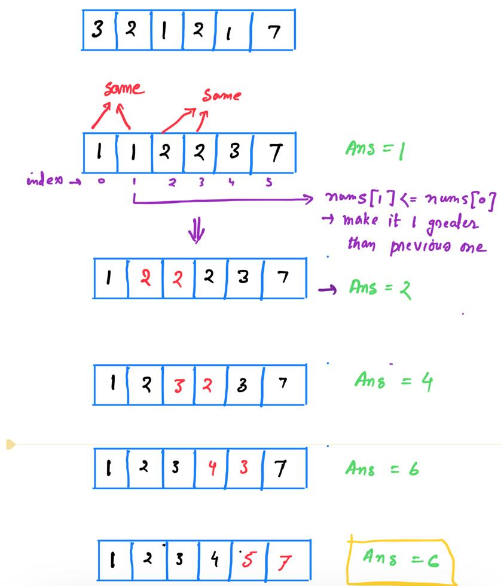 3 2 1 2 1 7
same same
1 1 2 2 3 7 Ans = 1
index → 0 1 2 3 4 5
nums[1] <= nums[0]
→ make it 1 greater
than previous one
1 2 2 2 3 7 → Ans = 2
1 2 3 2 3 7 Ans = 4
1 2 3 4 3 7 Ans = 6
1 2 3 4 5 7 Ans = 6